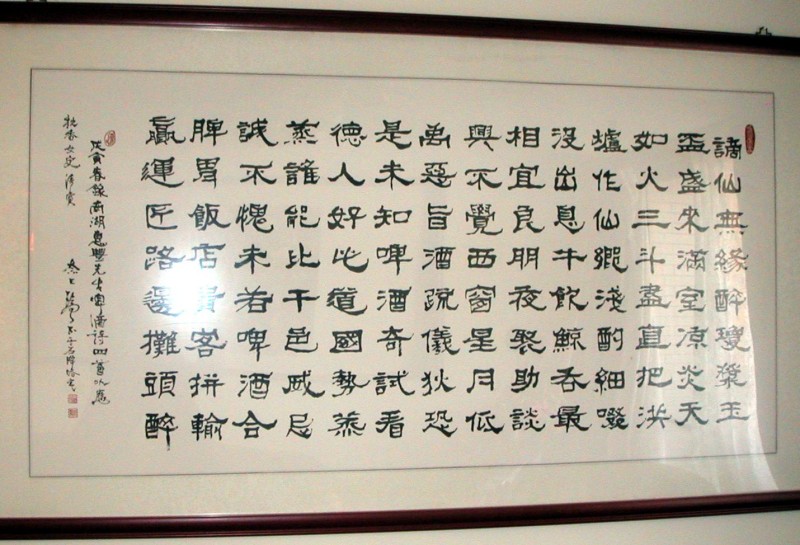 謫仙無緣醉瓊漿玉
盃盛來滿室涼炎天
如火三斗盡直把洪
爐作仙鄉淺酌細啜
沒出息牛飲鯨吞最
相宜良朋夜聚助談
興不覺西窗星月低
禹惡旨酒疏儀狄恐
是未知啤酒奇試看
德人好此道國勢蒸
蒸誰能比干邑威忌
誠不愧未若啤酒合
脾胃飯店貴客拼輸
贏運匠路邊攤頭醉
戊寅春錄南湖先生詩四首以應
女史清賞